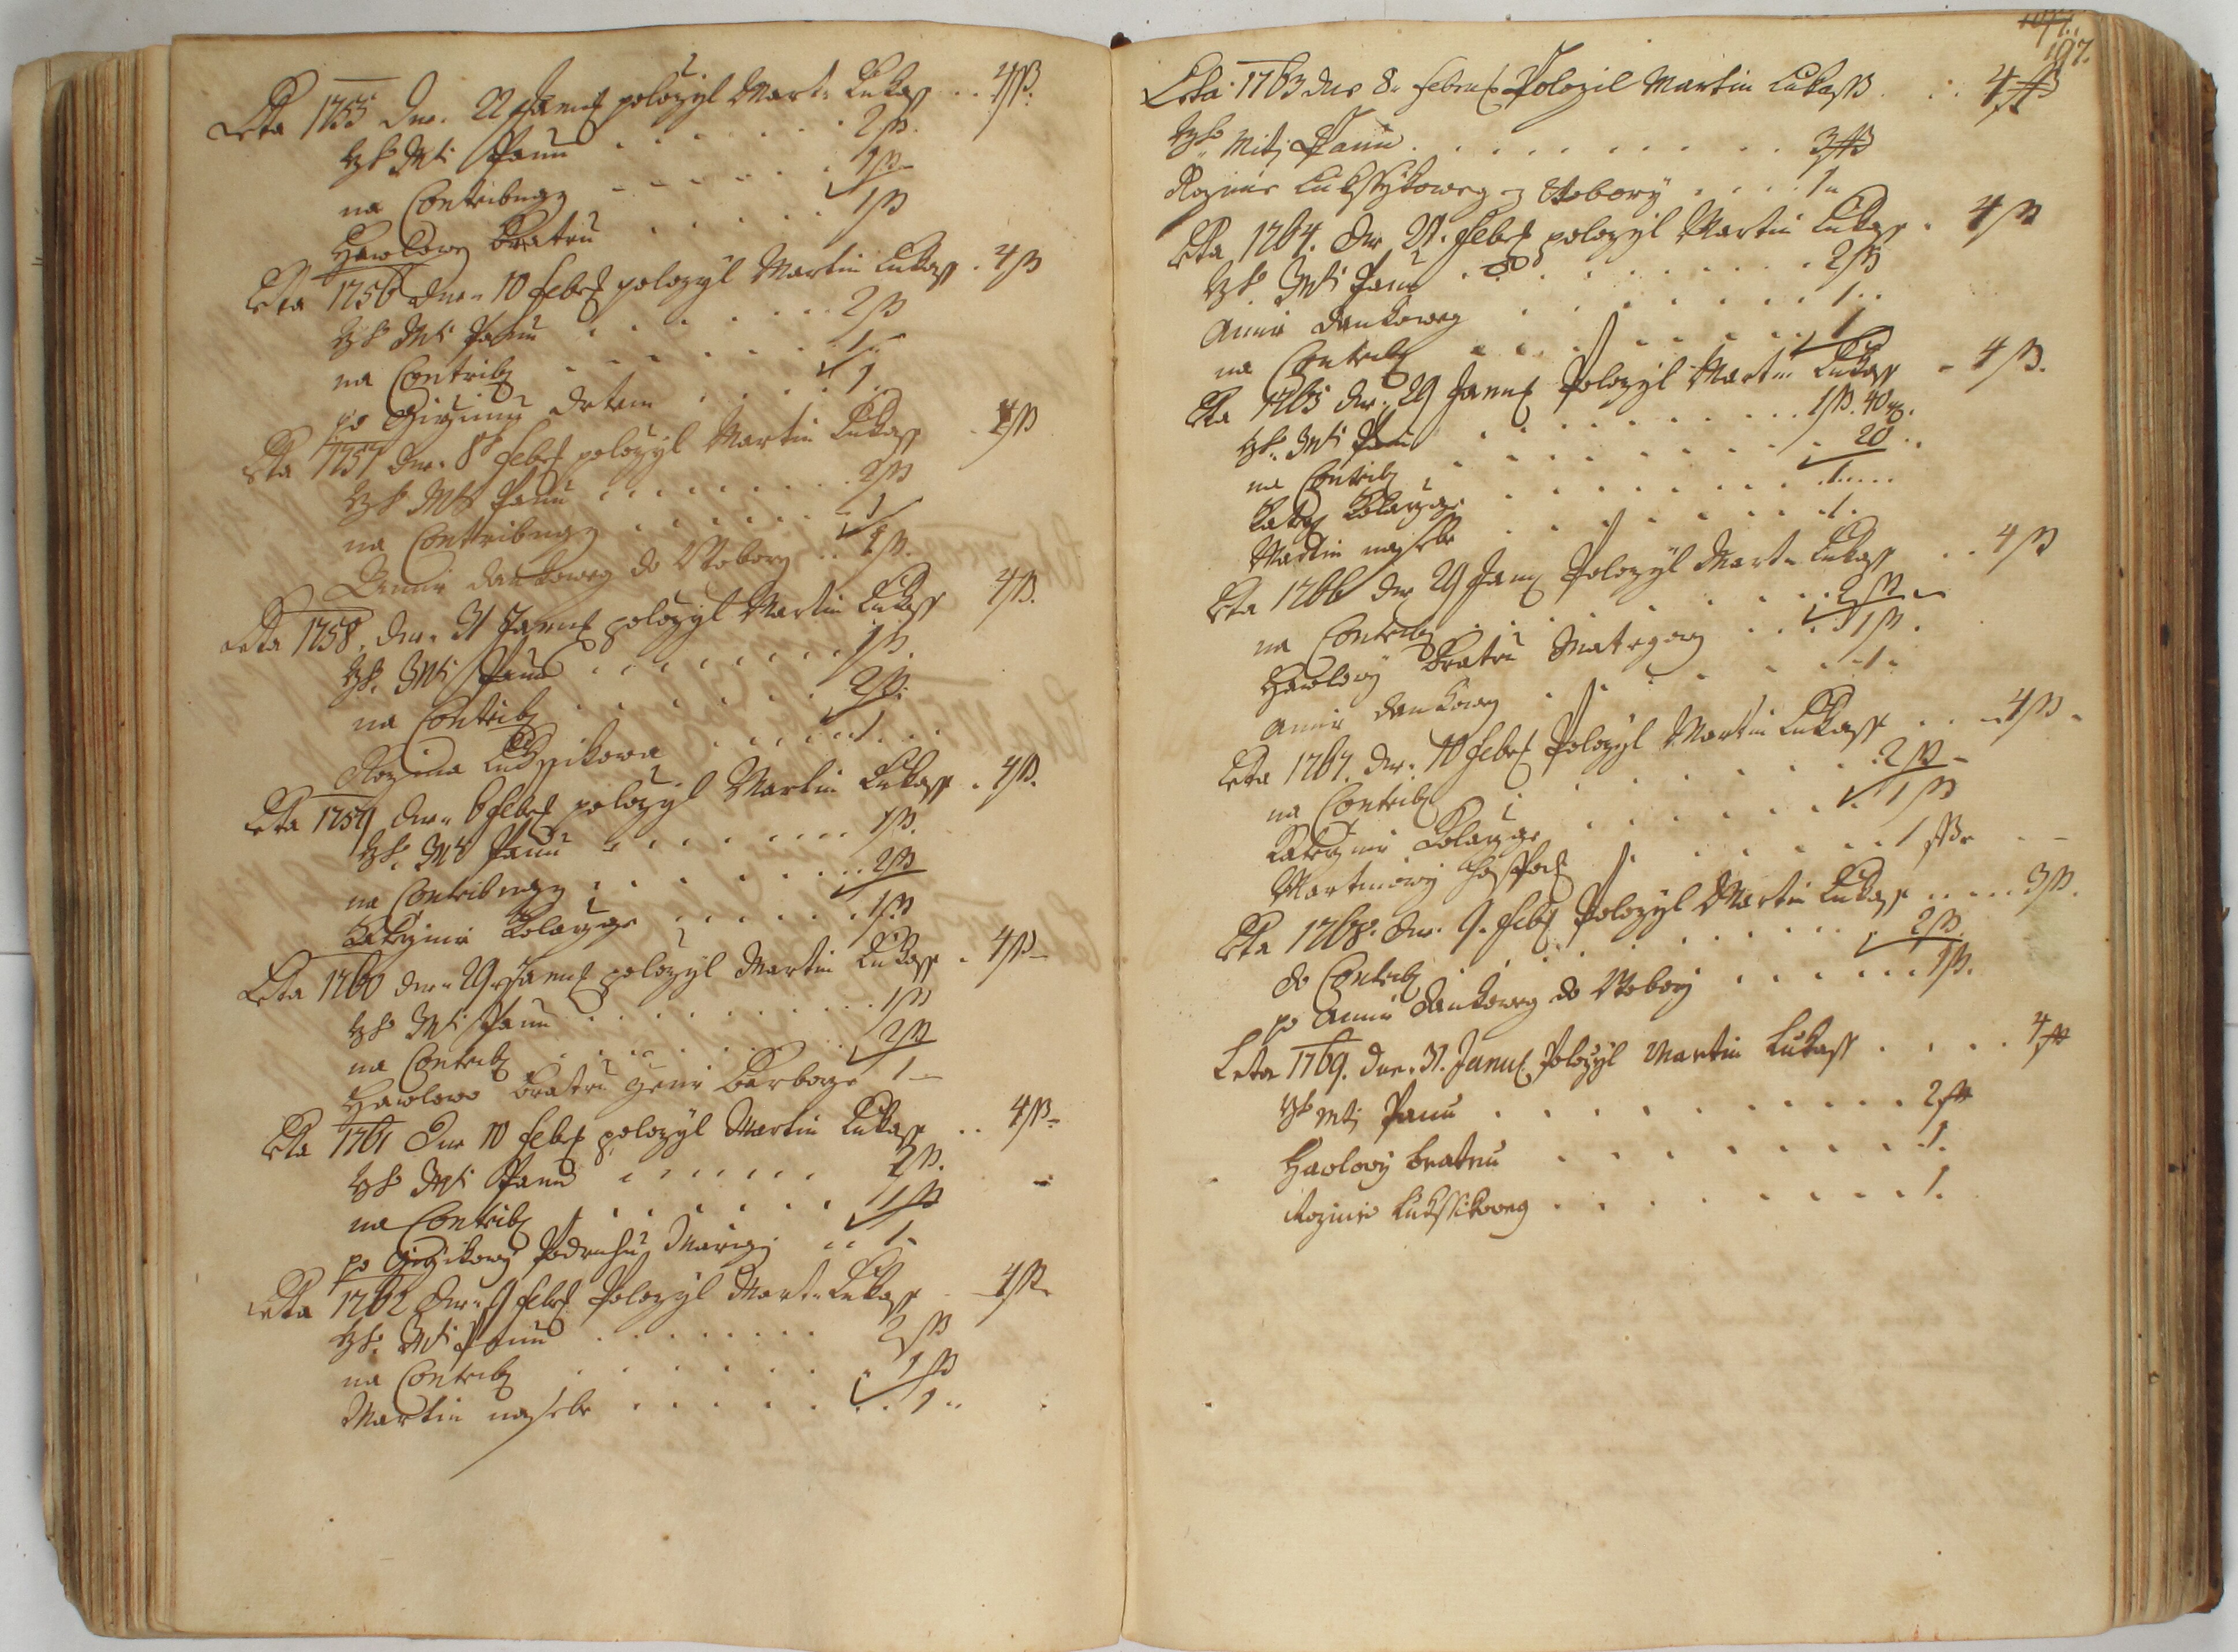 Leta 1755 dne 22 Januar polozyl Mart. Lukass .. 4 ß.
Gh Mti Panu . . . . . . 2 ß.
na Contribuczy . . . . . . 1 ß
Hawlowy Bratru . . . . . 1 ß
Leta 1756 dne 10 Febr polozyl Martin Lukass . 4 ß
Gh Mti Panu . . . . . . 2 ß
na Contrib . . . . . . 1 -
po Girzimu . . . . 1 .
Leta 1757 dne 8 Febr polozyl Martin Lukass . 4 ß
Gh Mti Panu . . . . . . . 2 ß
na Contribuczy . . . . . . 1
Annie Dankoweg do Stobory .. 1 ß.
Leta 1758. dne 31 Januar polozyl Martin Lukass 4 ß.
Gh. Mti Panu . . . . . . . . 1 ß.
na Contrib . . . . . . 2 ß.
Rozina Lukssikowa . . . . . . 1 . . .
Leta 1759 dne 6 Febr polozyl Martin Lukass . 4 ß.
Gh. Mti Panu . . . . . . . . 1 ß.
na Contribuczy . . . . . . . . 2 ß
Katerzinie Kolarzge . . . . . . 1 ß
Leta 1760 dne 29 Januar polozyl Martin Lukass . 4 ß -
Gh Mti Panu . . . . . . . . 1 ß
na Contrib . . . . . . . 2 ß
Hawlowo Bratru Barborze 1 -
Leta 1761 Dne 10 Febr polozyl Martin Lukass .. 4 ß -
Gh Mti Panu . . . . . . . 2 ß.
na Contrib . . . . . . . 1 ß
po Podruhu Marigi .. 1 -
Leta 1762 Dne 9 Febr Polozyl Mart. Lukass - 4 ß
Gh. Mti Panu . . . . . . . . 2 ß
na Contrib . . . . . . . 1 ß
Martin na sebe . . . . . . . . 1 ..
197.
Leta 1763 dne 8. Febru Polozil Martin Lukass . . . 4 ß
Gh. Mti Panu . . . . . . . . . . 3 ß
Rozinie Lukssykoweg z Stobory . . . . 1 -
Leta 1764. Dne 21. Febr polozyl Martin Lukass . 4 ß
Gh. Mti Panu . . . . . . . . . 2 ß
Annie Dankoweg . . . . . . . . 1 . .
na Contrib . . . . . . . . . 1
Leta 1765 dne 29 Janu Polozyl Martin Lukass - 4 ß.
Gh. Mti Panu . . . . . . . . . . 1 ß. 40 x.
na Contrib . . . . . . . . . 20 . .
Kater Kolarzge . . . . . . . . . . 1 . . . .
Martin na sebe . . . . . . . . . 1 .
Leta 1766 dne 29 Janu Polozyl Mart. Lukass . . 4 ß
na Contrib . . . . . . . . . 2 ß -
Hawlowy Bratru Mategowy . . . . 1 ß .
Annie Dankoweg . . . . . . . . 1 .
Leta 1767. dne 10 Febr Polozyl Martin Lukass . . . 4 ß -
na Contrib . . . . . . . . . 2 ß -
Katerzinie Kolarzge . . . . . . . . 1 ß
Martinowy . . . . . . . . 1 ß - -
Leta 1768. dne 9. Feb Polozyl Martin Lukass . . . . . 3 ß.
do Contrib . . . . . . . . . . . . 2 ß.
po Annie Dankoweg do Stobory . . . . . . . 1 ß.
Leta 1769. dne 31. Janu Polozyl Martin Lukass . . . . 4 ß
Gh Mti Panu . . . . . . . . . . . 2 ß
Hawlowy bratru . . . . . . . . . 1.
Rozinie Lukssikoweg . . . . . . . . 1.